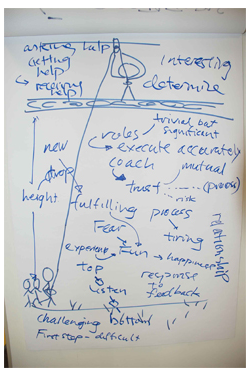 asking help
getting
help
→ receiving
help
Interesting
determine
new
height
roles
trivial but
significant
→ execute accurately
coach
mutual
trust
(process)
risk
fulfilling
process
relationship
Fear
timing
experience
Fun → happiness
top
response
to
feedback
listen
challenging
bottom
First step - difficult